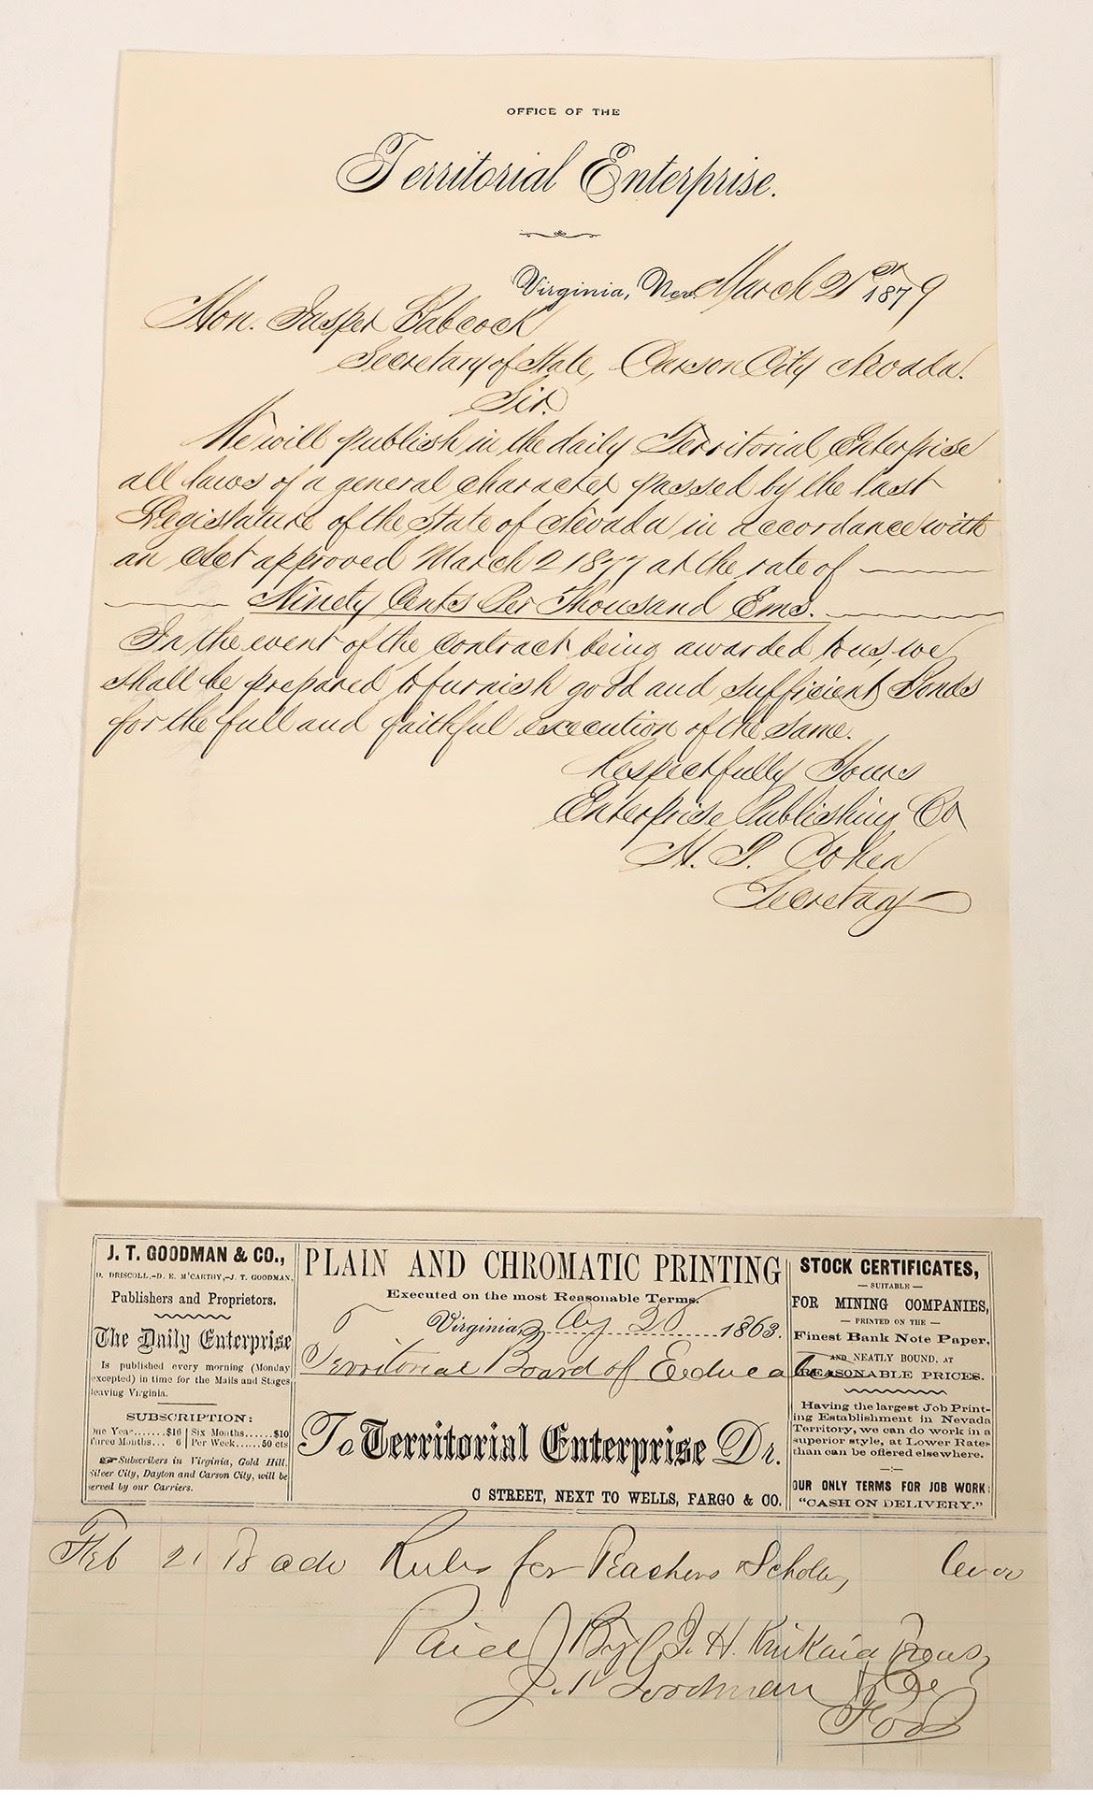 OFFICE OF THE
Territorial Enterprise.
Virginia, Nev. March 21st 1879
Hon. Jasper Babcock
Secretary of State, Carson City Nevada.
Sir.
We will publish in the daily Territorial Enterprise
all laws of a general character passed by the last
Legislature of the State of Nevada in accordance with
an Act approved March 2 1877 at the rate of
Ninety Cents Per Thousand Ems.
In the event of the contract being awarded to us, we
shall be prepared to furnish good and sufficient Bonds
for the full and faithful execution of the same.
Respectfully Yours
Enterprise Publishing Co
Cohen
Secretary
J. T. GOODMAN & CO.,
D. DRISCOLL.–D. E. M'CARTHY,–J. T. GOODMAN,
Publishers and Proprietors.
The Daily Enterprise
Is published every morning (Monday
excepted) in time for the Mails and Stages
leaving Virginia.
SUBSCRIPTION:
One Year.......$16 | Six Months......$10
Three Months... 6 | Per Week......50 cts
Subscribers in Virginia, Gold Hill.
Silver City, Dayton and Carson City, will be
served by our Carriers.
PLAIN AND CHROMATIC PRINTING
Executed on the most Reasonable Terms.
Virginia, 20 1863.
Territorial Board of Educa
To Territorial Enterprise Dr.
C STREET, NEXT TO WELLS, FARGO & CO.
STOCK CERTIFICATES,
— SUITABLE —
FOR MINING COMPANIES,
— PRINTED ON THE —
Finest Bank Note Paper,
AND NEATLY BOUND, AT
REASONABLE PRICES.
Having the largest Job Print-
ing Establishment in Nevada
Territory, we can do work in a
superior style, at Lower Rates
than can be offered elsewhere.
OUR ONLY TERMS FOR JOB WORK:
"CASH ON DELIVERY."
Feb 21 Rules for Teachers
Paid By
Goodman & Co